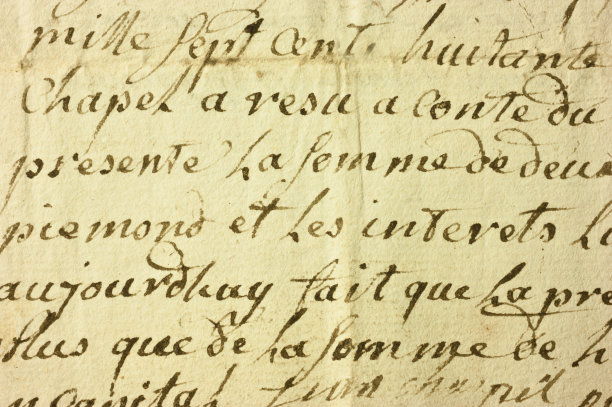 mille sept cent. huitante
Chapel a resu a conte du
presente La somme de deux
piemond et Les interets L
aujourdhuy fait que La pre
plus que de La somme de h
n capital